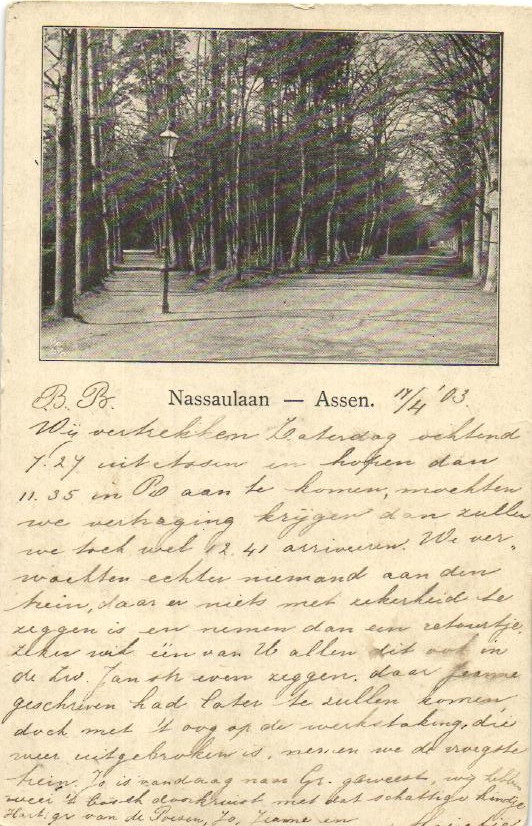 B. B. Nassaulaan — Assen. 17/4 '03
Wij vertrekken Zaterdag ochtend
7.27 uit Assen en hopen dan
11.35 in aan te komen, mochten
we vertraging krijgen dan zullen
we toch wel 12.41 arriveeren. We ver-
wachten echter niemand aan den
trein, daar er niets met zekerheid te
zeggen is en nemen dan een retourtje
zeker wil één van U allen dit ook in
de Zw. Jan str even zeggen, daar Jeanne
geschreven had later te zullen komen,
doch met 't oog op de werkstaking, die
weer uitgebroken is, nemen we de vroegste
trein. Jo is vandaag naar Gr. geweest, wij hebben
weer 't bosch doorkruist met dat schattige hondje
Hart. gr. van de Poesen, Jo, Jeanne en